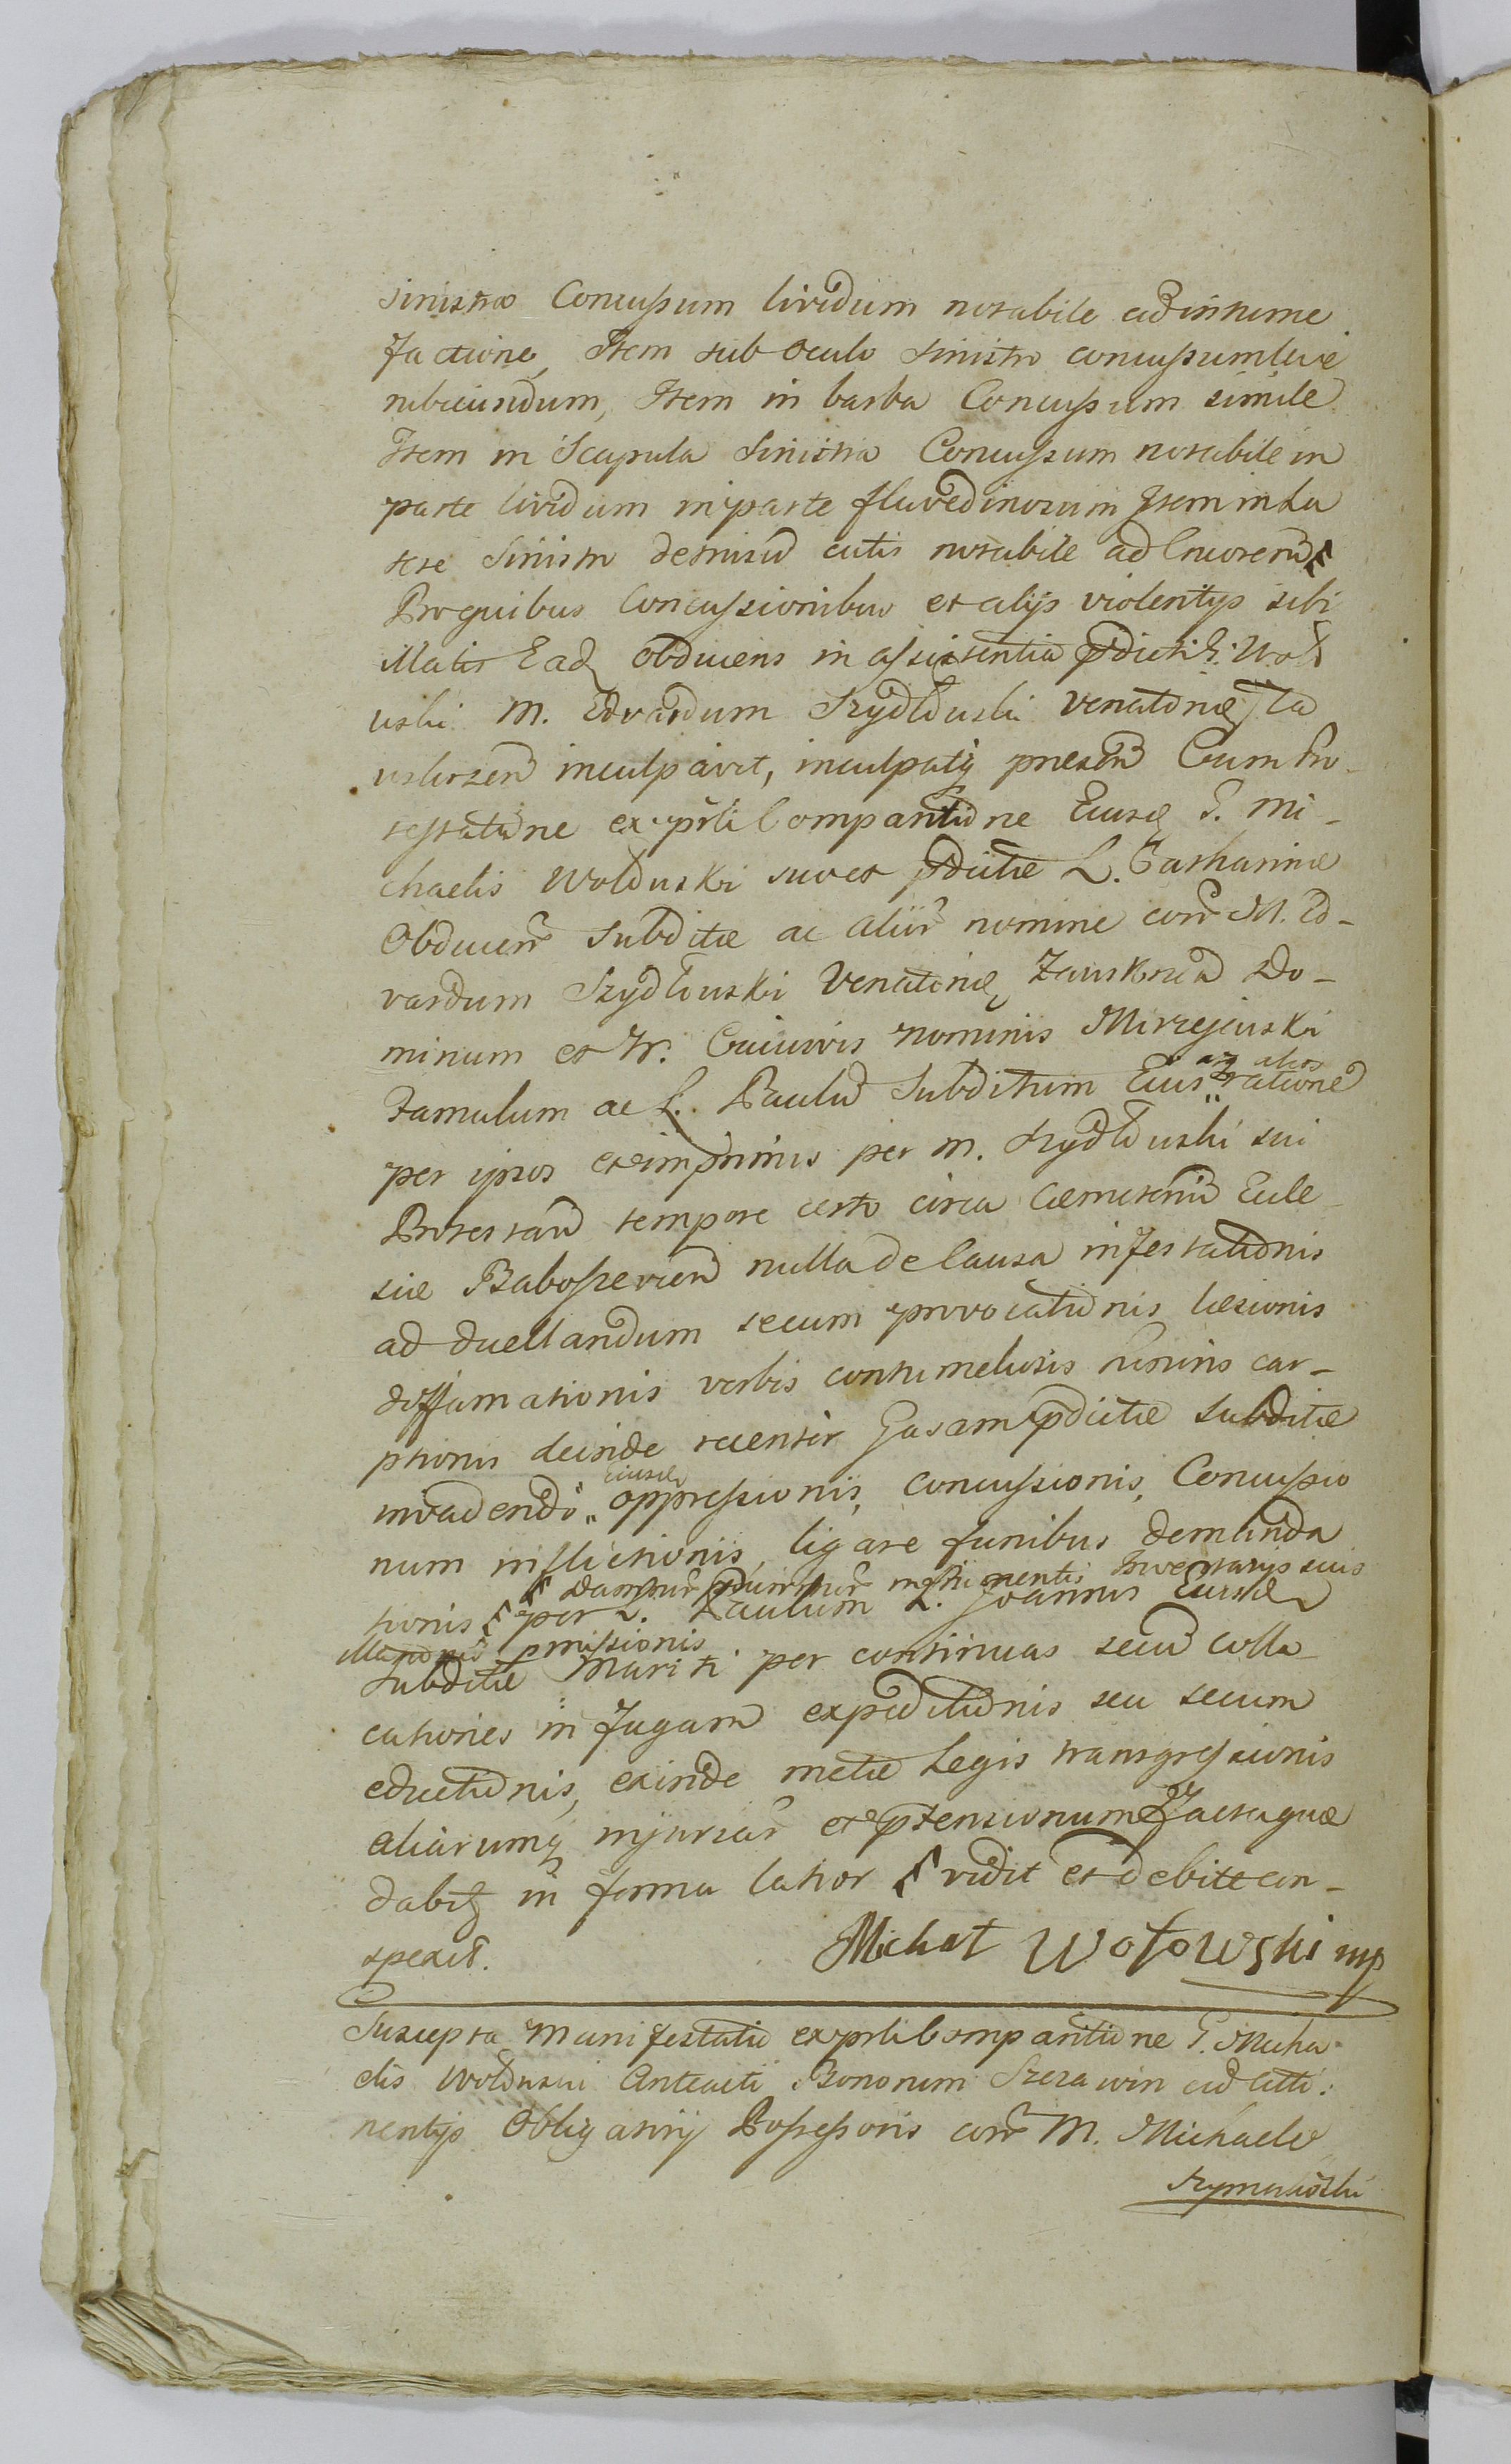 sinistro Concussum lividum notabile ad intume
factione, Item sub oculo sinistro concussum leve
rubicundum, Item in barba Concussum simile
Item in Scapula Sinistra Concussum notabile in
parte lividum in parte flavedinosum Item in La
tere Sinistro demisud cutis notabile ad Cruorem
Pro quibus Concussionibus et alijs violentijs sibi
illatis Eadq obducens in assistentia pdicti G. Woło
uski M. Edvardum Szydłouski Venatoriæ Za
uskrzen inculpavit, inculpatq presen Cum Pro
testatione ex psli Comparitione Eiusq G. Mi-
chaelis Wołouski suo et pdictæ L. Catharinæ
Obducen Subditæ ac aliir nomine con M. Ed-
vardum Szydłouski Venatoriæ Zauskrzen Do-
minum et N. Cuiusvis nominis Mirzejeuski
famulum ac L. Paulu Subditum Eius ratione
atq alios
per ipsos et imprimis per M. Szydłouski sui
Protestan tempore certo circa Cæmeteriu Eccle
siæ Babossevien nulla de Causa infestationis
ad duellandum secum provocationis læsionis
diffamationis verbis contumeliosis honoris car-
ptionis deinde recenter Casam pdictæ Subditæ
invadendi oppressionis, concussionis, Concussio
Eiusd
num inflictionis, ligare funibus demanda
tionis per L. Paulum L. Joannis Eiusd
subditæ Mariti per continuas secu Collo
missionis
cationes in fugam expeditionis seu secum
eductionis, exinde metæ Legis transgressionis
aliarumq injuriar et ptensionum facta quæ
dabit in forma latior vidit et debite con-
spexit.
Michał Wołowski mp
Suscepta Manifestatio ex psli Comparitione G. Micha
elis Wołouski Anteacti Bonorum Szczawin cu Atti:
nentijs Obligatorij Possessoris con M. Michaele
Szymanoski